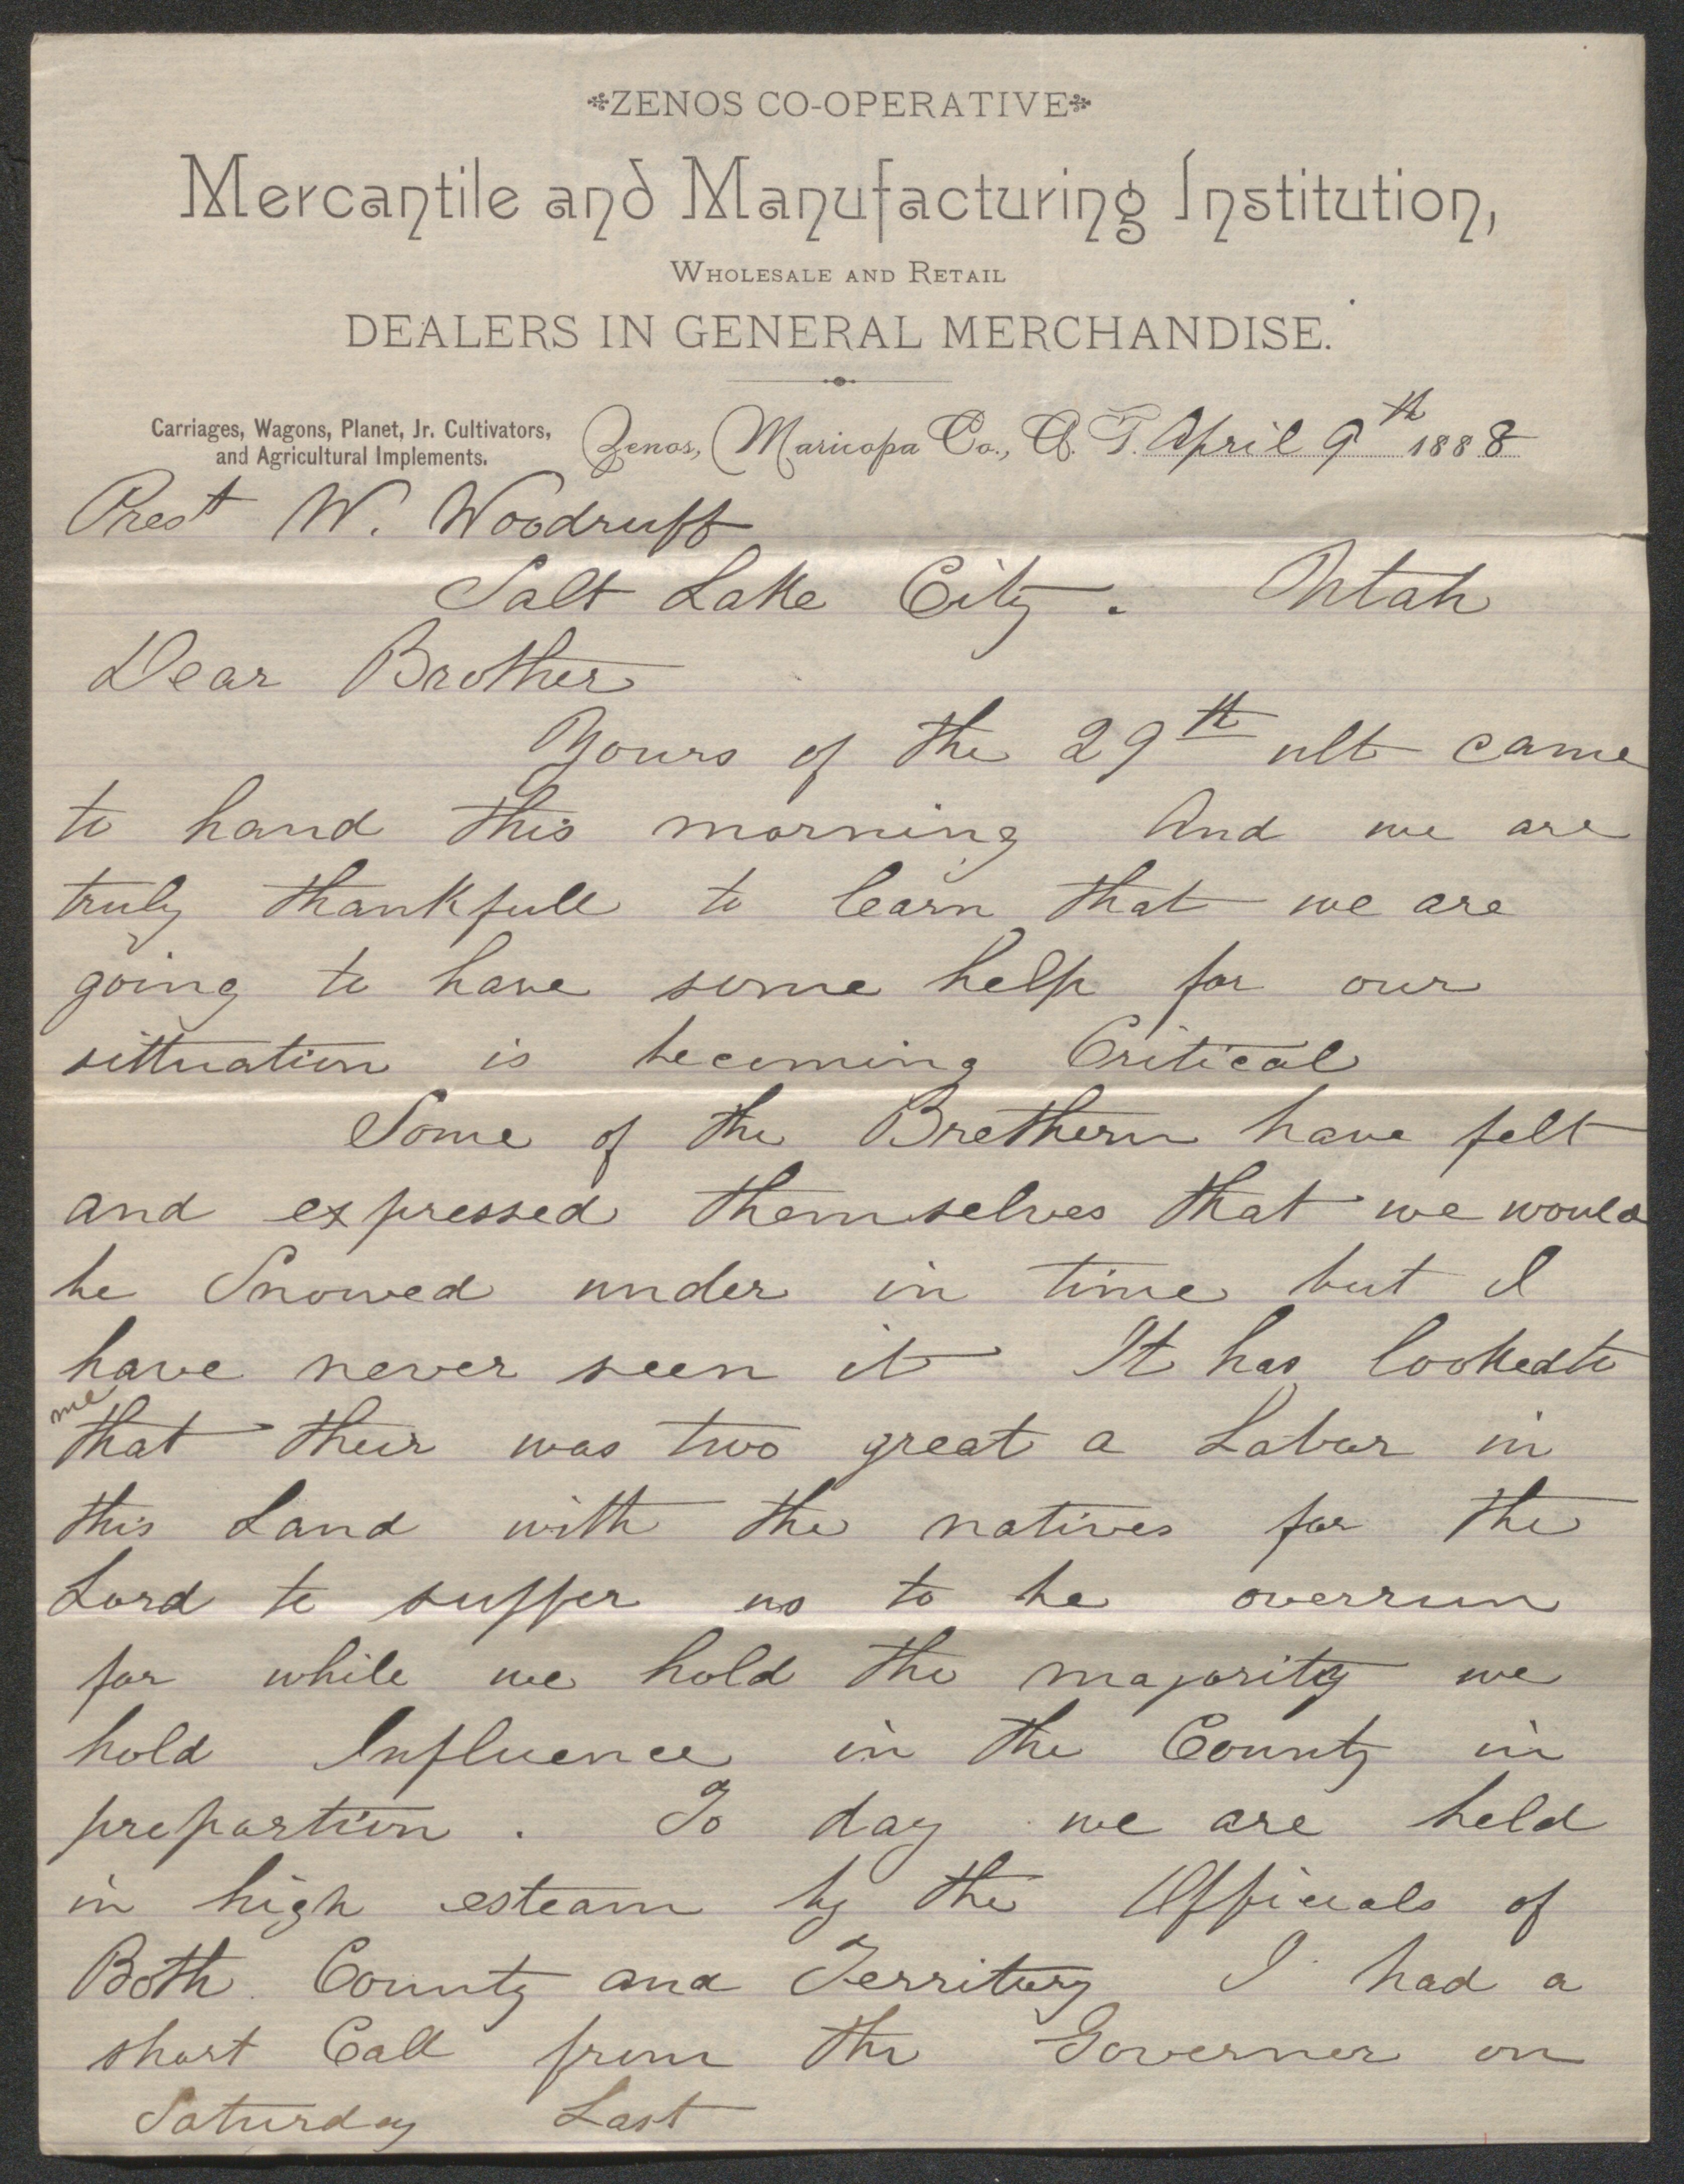 ZENOS CO-OPERATIVE
Mercantile and Manufacturing Institution,
WHOLESALE AND RETAIL
DEALERS IN GENERAL MERCHANDISE.
Carriages, Wagons, Planet, Jr. Cultivators,
and Agricultural Implements.
Zenos, Maricopa Co., A. T. April 9th 1888
Prest W. Woodruff
Salt Lake City. Utah
Dear Brother
Yours of the 29th ult came
to hand this morning And we are
truly thankfull to learn that we are
going to have some help for our
sittuation is becoming Critical
Some of the Brethern have felt
and expressed themselves that we would
be Snowed under in time but I
have never seen it It has looked to
me
that their was two great a Labor in
this Land with the natives for the
Lord to suffer us to be overrun
for while we hold the majority we
hold Influence in the County in
preportion. To day we are held
in high esteam by the Officials of
Both County and Territory I had a
short Call from the Governer on
Saturday Last